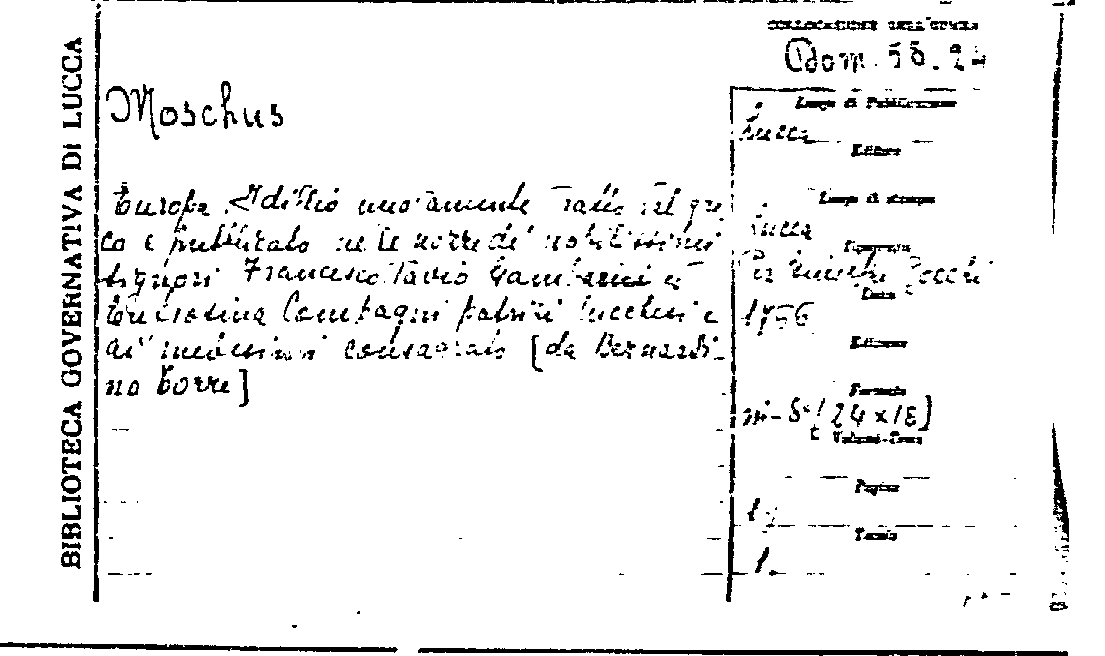 BIBLIOTECA GOVERNATIVA DI LUCCA
COLLOCAZIONE DELL'OPERA
Moschus
Europa Idillio nuovamente Tratto dal gre
co e pubblicato nelle nozze de' nobilissimi
signori Francesco Flavio Gamberini e
Compagni patrizi lucchesi e
ai medesimi consagrato [da Bernardi-
no Torre]
Luogo di Pubblicazione
Lucca
Editore
Luogo di stampa
Lucca
Tipografia
Per
Data
1756
Edizione
Formato
in-8° [24 x 18]
Volumi-Tomi
Pagine
Tavole
1.